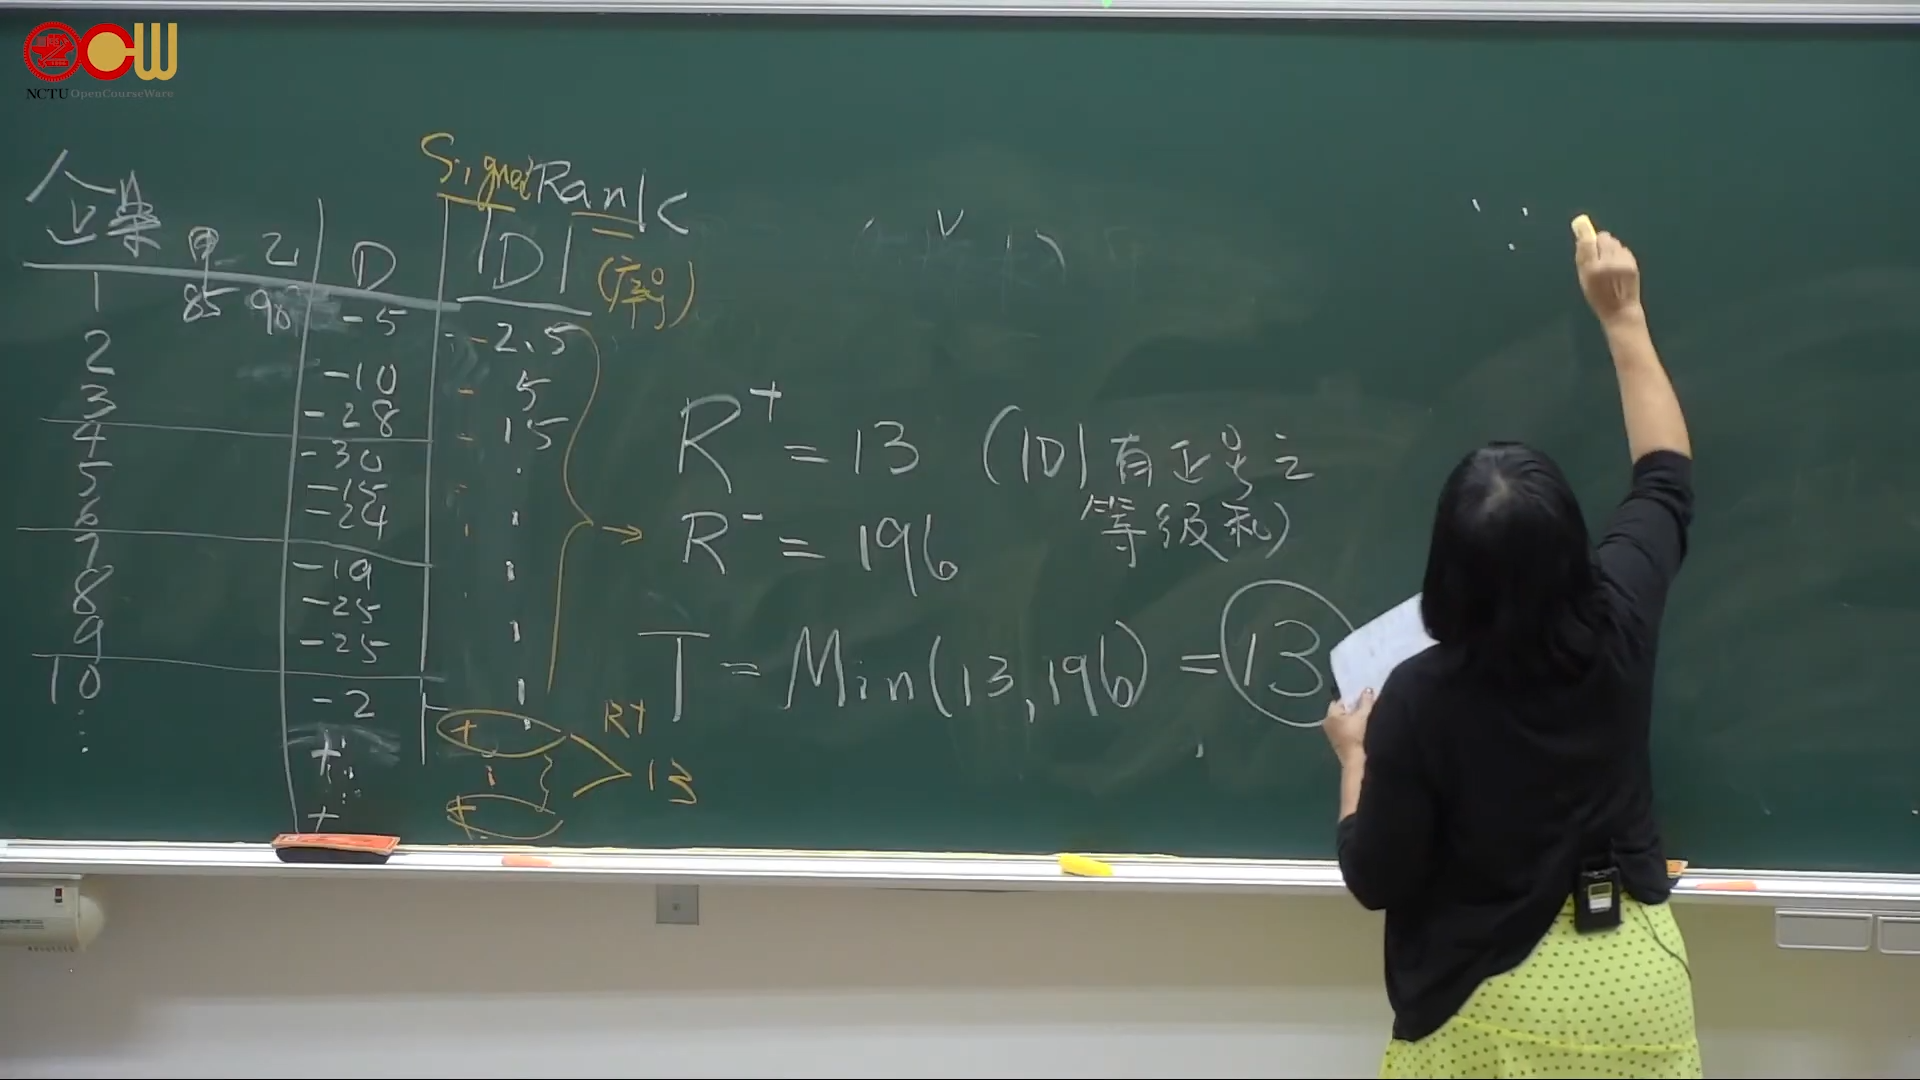 NCTU OpenCourseWare
Signed Rank
企業 甲 乙 D |D| (序号)
1 85 90 -5 -2.5
2 -10 - 5
3 -28 - 15
4 -30
5 -15
6 -24
7 -19
8 -25
9 -25
10 -2
⋮ +
+
R⁺ = 13 (|D| 有正号之
等級和)
R⁻ = 196
T = Min(13, 196) = 13
+ R+
+ 13
∵